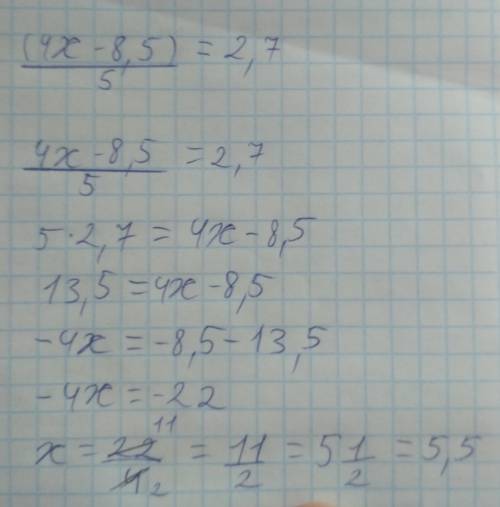 (4x - 8,5) / 5 = 2,7
4x - 8,5 / 5 = 2,7
5 · 2,7 = 4x - 8,5
13,5 = 4x - 8,5
-4x = -8,5 - 13,5
-4x = -22
x = 22 11 / 4 2 = 11 / 2 = 5 1/2 = 5,5